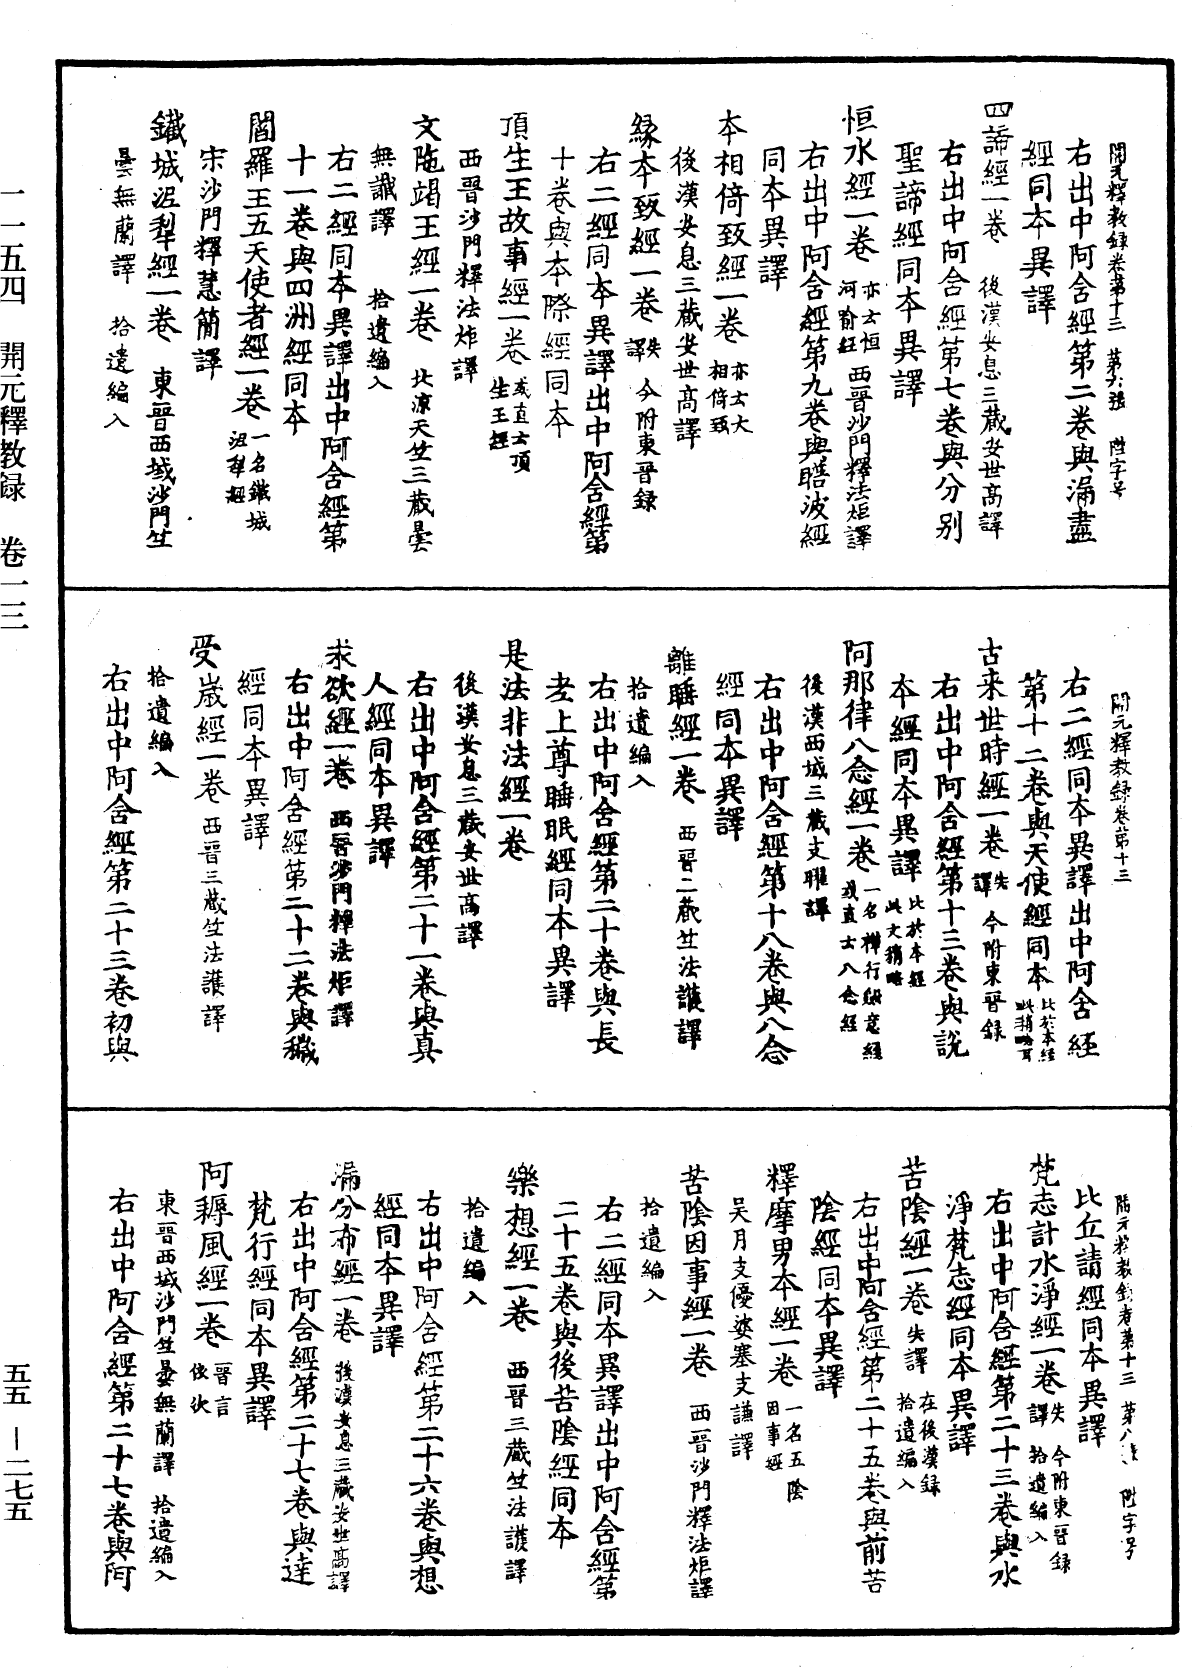 開元釋教録卷第十三 第六張 陞字号
右出中阿含經第二卷與漏盡
經同本異譯
四諦經一卷 後漢安息三藏安世高譯
右出中阿含經第七卷與分別
聖諦經同本異譯
恒水經一卷 亦云恒河喻經 西晉沙門釋法炬譯
右出中阿含經第九卷與瞻波經
同本異譯
本相倚致經一卷 亦云大相倚致
後漢安息三藏安世高譯
緣本致經一卷 失譯 今附東晉録
右二經同本異譯出中阿含經第
十卷與本際經同本
頂生王故事經一卷 或直云頂生王經
西晉沙門釋法炬譯
文陁竭王經一卷 北涼天竺三藏曇
無讖譯 拾遺編入
右二經同本異譯出中阿含經第
十一卷與四洲經同本
閻羅王五天使者經一卷 一名鐵城泥犁經
宋沙門釋慧簡譯
鐵城泥犁經一卷 東晉西域沙門竺
曇無蘭譯 拾遺編入
開元釋教録卷第十三
右二經同本異譯出中阿含經
第十二卷與天使經同本 比於本經此稍略耳
古来世時經一卷 失譯 今附東晉録
右出中阿含經第十三卷與說
本經同本異譯 比於本經此文稍略
阿那律八念經一卷 一名禪行斂意經或直云八念經
後漢西域三藏支曜譯
右出中阿含經第十八卷與八念
經同本異譯
離睡經一卷 西晉三藏竺法護譯
拾遺編入
右出中阿含經第二十卷與長
老上尊睡眠經同本異譯
是法非法經一卷
後漢安息三藏安世高譯
右出中阿含經第二十一卷與真
人經同本異譯
求欲經一卷 西晉沙門釋法炬譯
右出中阿含經第二十二卷與穢
經同本異譯
受歲經一卷 西晉三藏竺法護譯
拾遺編入
右出中阿含經第二十三卷初與
開元釋教録卷第十三 第八張 陞字号
比丘請經同本異譯
梵志計水淨經一卷 失譯 今附東晉録拾遺編入
右出中阿含經第二十三卷與水
淨梵志經同本異譯
苦陰經一卷 失譯 在後漢録拾遺編入
右出中阿含經第二十五卷與前苦
陰經同本異譯
釋摩男本經一卷 一名五陰因事經
吳月支優婆塞支謙譯
苦陰因事經一卷 西晉沙門釋法炬譯
拾遺編入
右二經同本異譯出中阿含經第
二十五卷與後苦陰經同本
樂想經一卷 西晉三藏竺法護譯
拾遺編入
右出中阿含經第二十六卷與想
經同本異譯
漏分布經一卷 後漢安息三藏安世高譯
右出中阿含經第二十七卷與達
梵行經同本異譯
阿耨風經一卷 晉言依次
東晉西域沙門竺曇無蘭譯 拾遺編入
右出中阿含經第二十七卷與阿
一一五四 開元釋教録 卷一三
五五—二七五